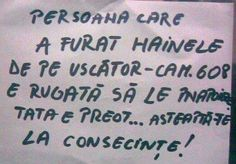 PERSOANA CARE
A FURAT HAINELE
DE PE USCĂTOR-CAM.608
E RUGATĂ SĂ LE ÎNAPOIEZE
TATA E PREOT... AȘTEAPTĂ-TE
LA CONSECINȚE!